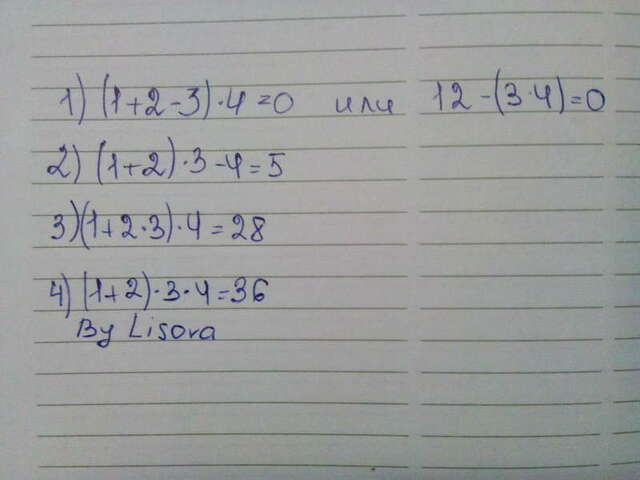 1) (1+2-3)·4=0 или 12-(3·4)=0
2) (1+2)·3-4=5
3) (1+2·3)·4=28
4) (1+2)·3·4=36
By Lisova